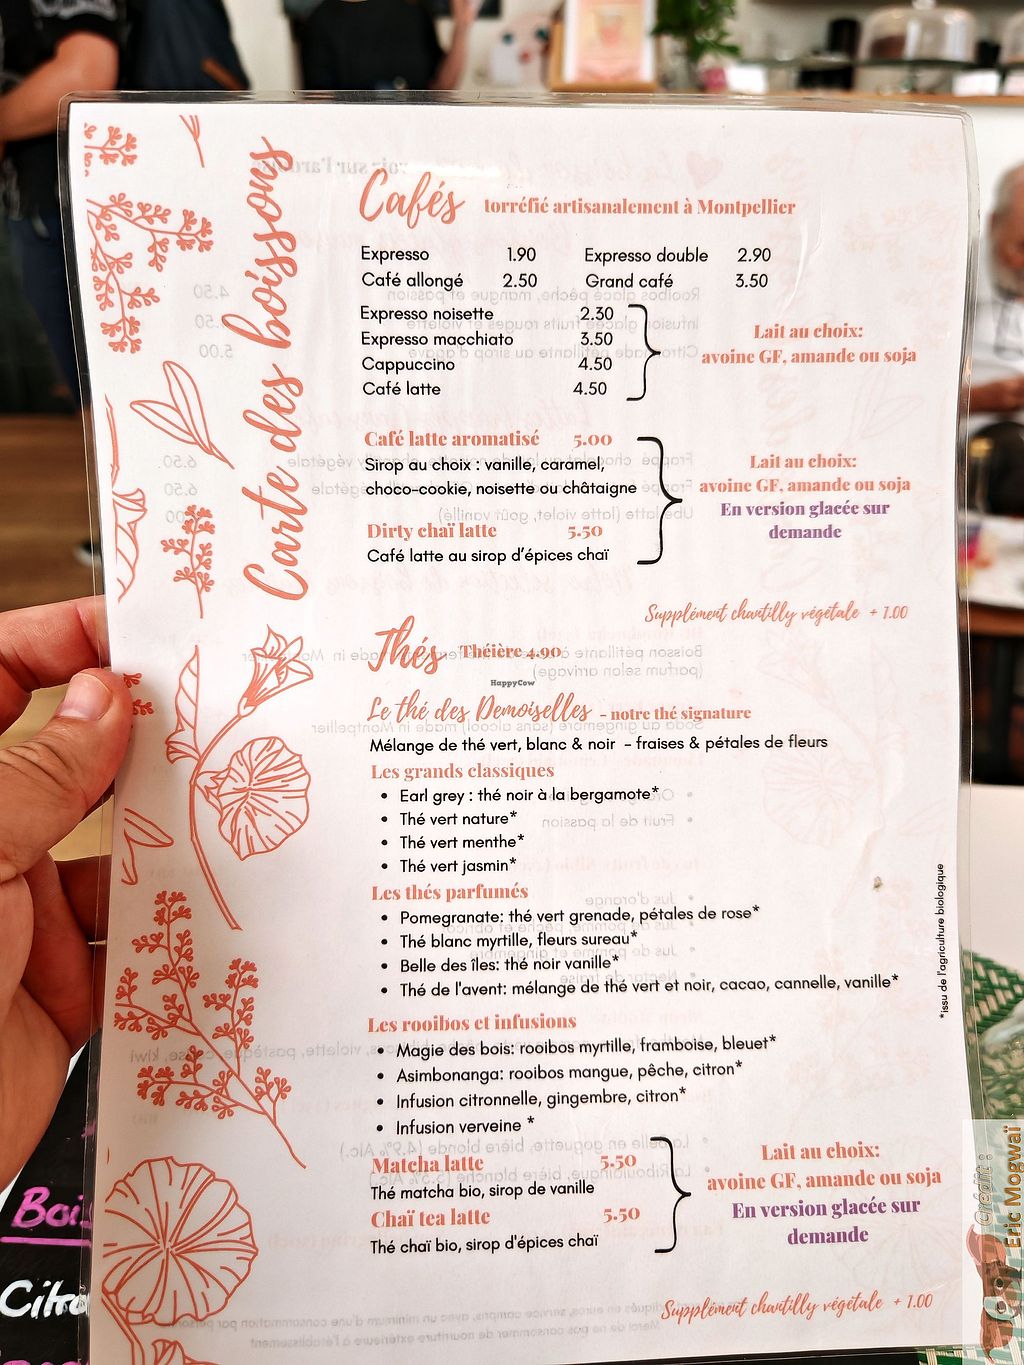 Carte des boissons
Cafés torréfié artisanalement à Montpellier
Expresso 1.90 Expresso double 2.90
Café allongé 2.50 Grand café 3.50
Expresso noisette 2.30
Expresso macchiato 3.50
Cappuccino 4.50
Café latte 4.50
Lait au choix:
avoine GF, amande ou soja
Café latte aromatisé 5.00
Sirop au choix : vanille, caramel,
choco-cookie, noisette ou châtaigne
Dirty chaï latte 5.50
Café latte au sirop d'épices chaï
Lait au choix:
avoine GF, amande ou soja
En version glacée sur
demande
Supplément chantilly végétale + 1.00
Thés Théière 4.90
HappyCow
Le thé des Demoiselles - notre thé signature
Mélange de thé vert, blanc & noir - fraises & pétales de fleurs
Les grands classiques
• Earl grey : thé noir à la bergamote*
• Thé vert nature*
• Thé vert menthe*
• Thé vert jasmin*
Les thés parfumés
• Pomegranate: thé vert grenade, pétales de rose*
• Thé blanc myrtille, fleurs sureau*
• Belle des îles: thé noir vanille*
• Thé de l'avent: mélange de thé vert et noir, cacao, cannelle, vanille*
*issu de l'agriculture biologique
Les rooibos et infusions
• Magie des bois: rooibos myrtille, framboise, bleuet*
• Asimbonanga: rooibos mangue, pêche, citron*
• Infusion citronnelle, gingembre, citron*
• Infusion verveine *
Matcha latte 5.50
Thé matcha bio, sirop de vanille
Chaï tea latte 5.50
Thé chaï bio, sirop d'épices chaï
Lait au choix:
avoine GF, amande ou soja
En version glacée sur
demande
Supplément chantilly végétale + 1.00
Crédit :
Eric Mogwaï